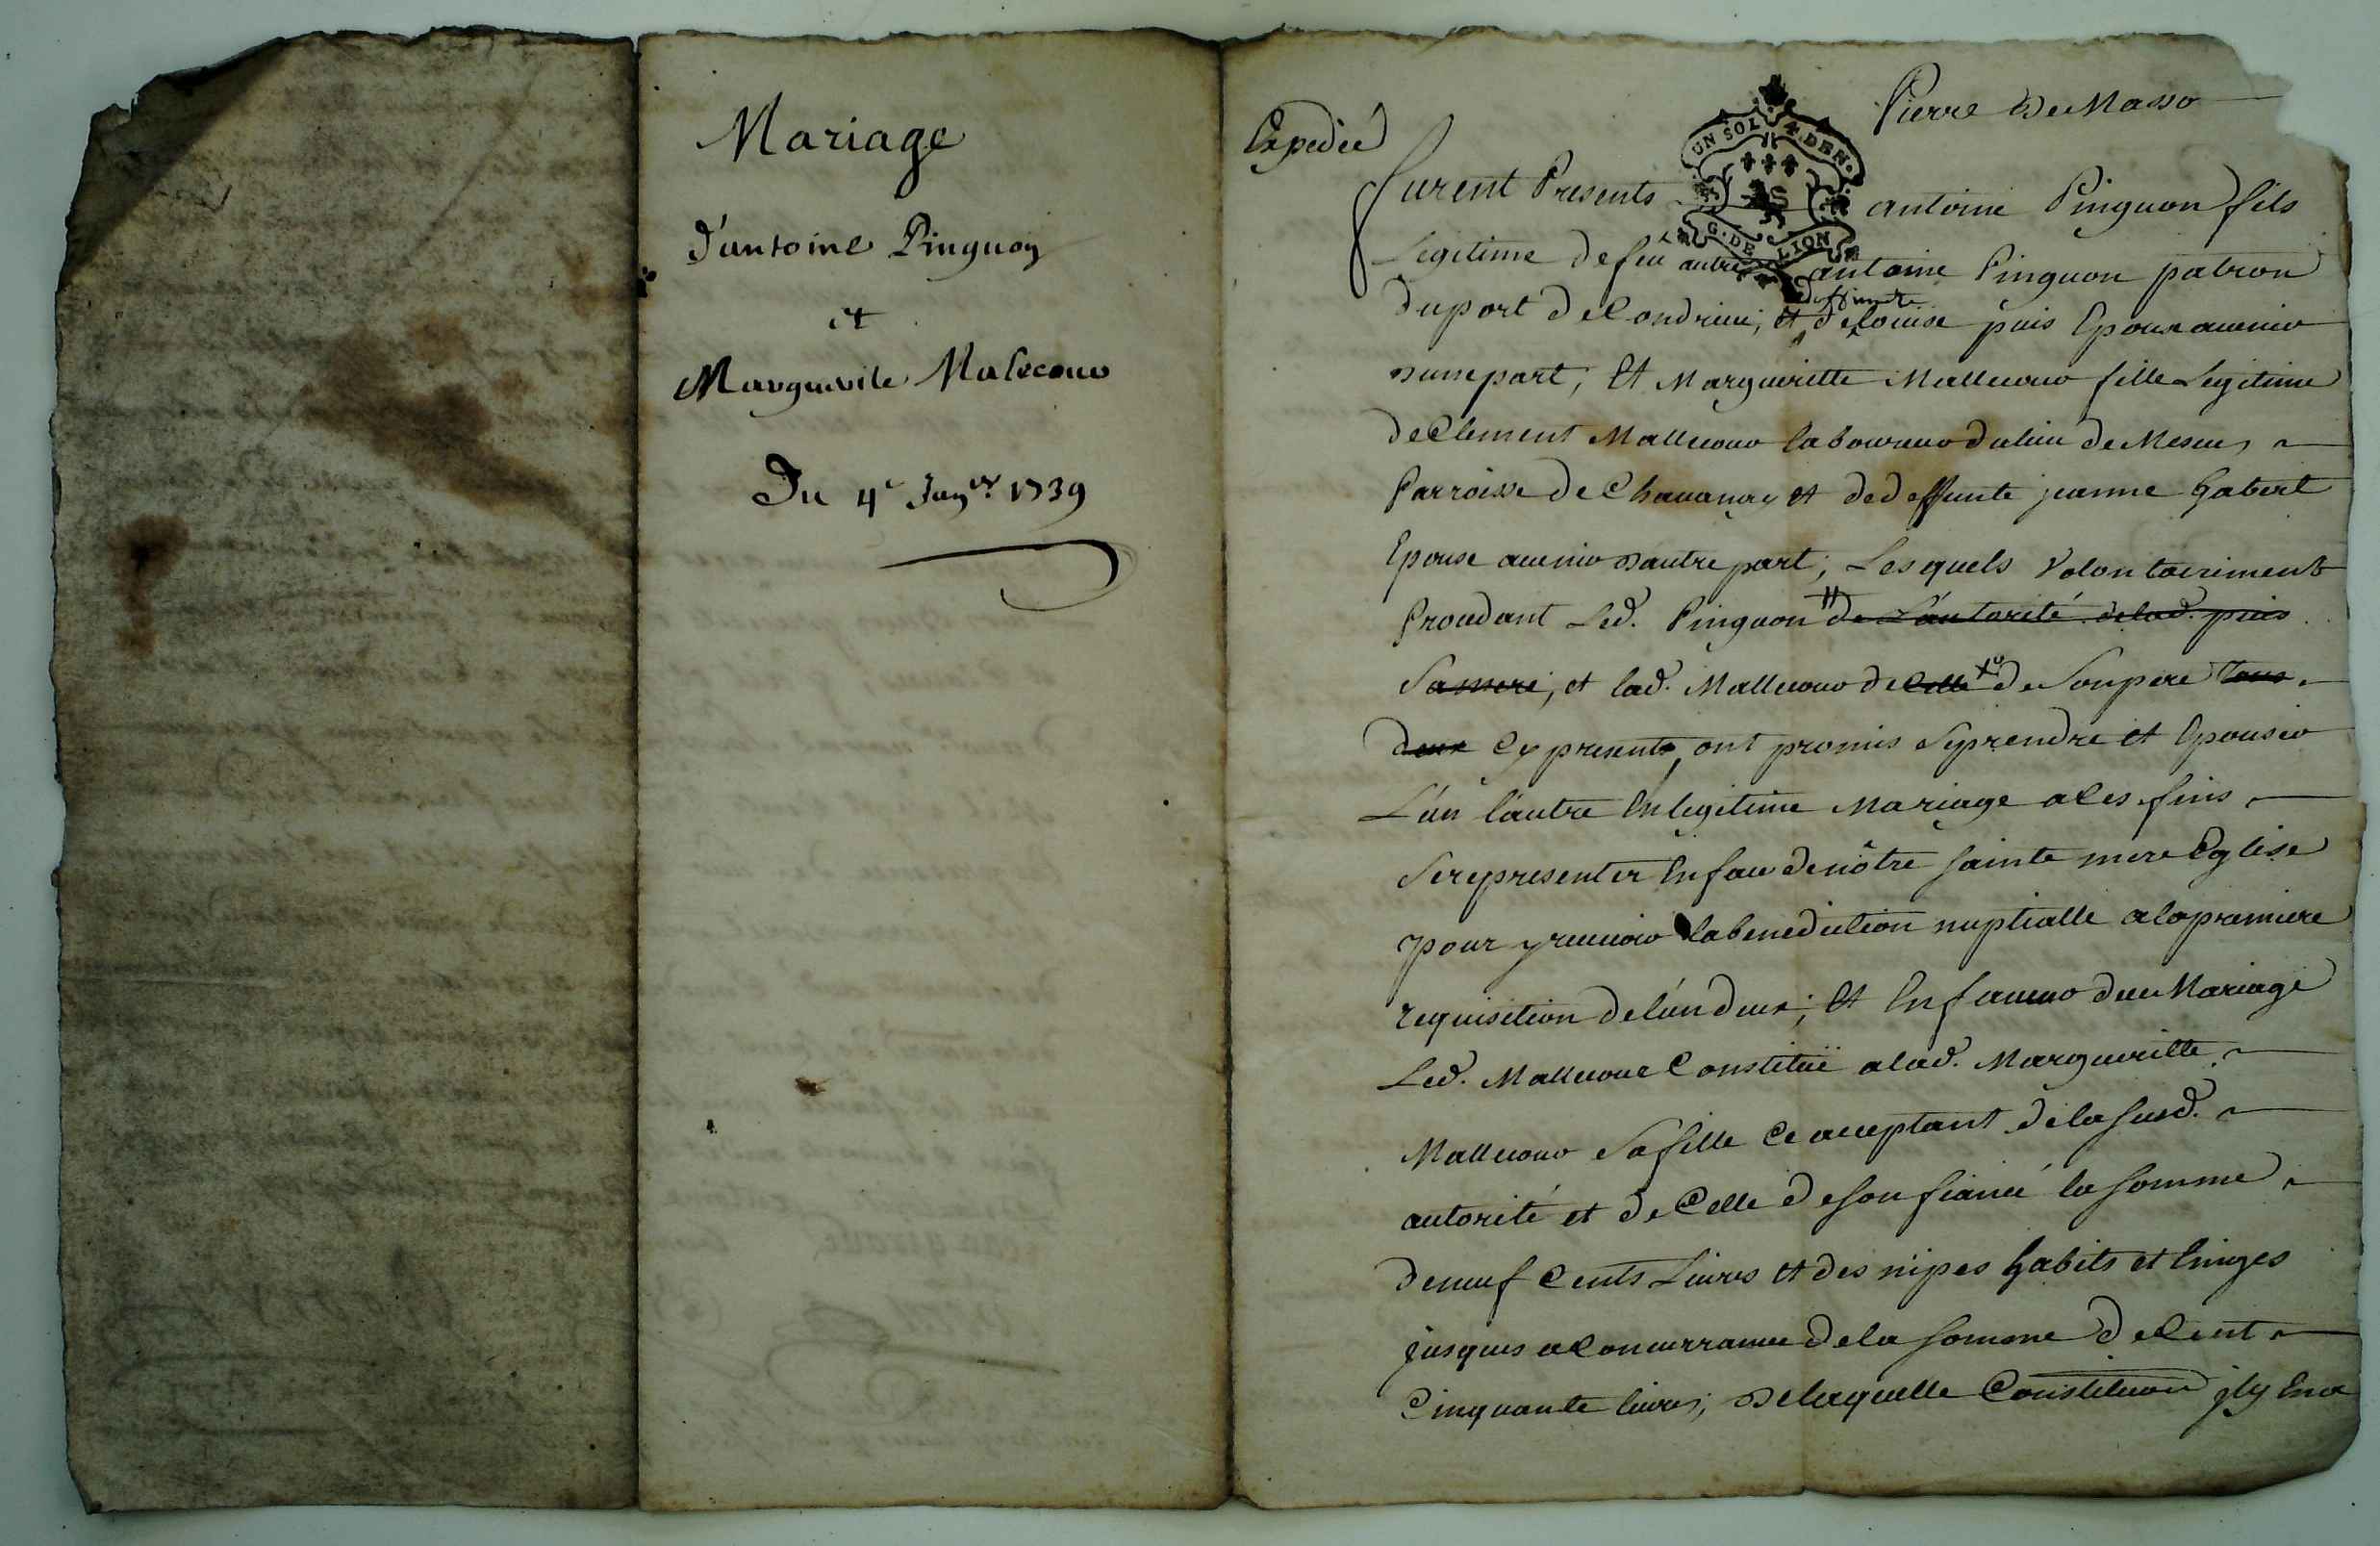 Mariage
d'antoine Pinguon
et
Marguerite Malecour
Du 4e Janvr. 1739
Expedié
Pierre De Masso
UN SOL 4 DEN.
G. DE LION
furent Presents antoine Pinguon fils
Legitime de feu autre antoine Pinguon patron
du port de Condrieu, et de deffunte Louise puis Epoux avenir
d'une part, Et Margueritte Mallecour fille Legitime
de Clement Mallecour laboureur du lieu de
Parroisse de Chavanay et de deffunte jeanne Gabert
Epouse avenir d'autre part; Lesquels volontairement
Procedant Led. Pinguon de L'autorité de lad. puis
Sa mere, et lad. Mallecour de Celle de Son pere tous
deux Cy presents, ont promis Se prendre et Epouser
L'un l'autre En legitime Mariage a Ces fins
Se representer En face de nôtre Sainte mere Eglise
pour y recevoir la benediction nuptialle a la premiere
requisition de l'un deux; Et En faveur du Mariage
Led. Mallecour Constitüe a lad. Margueritte
Mallecour Sa fille Ce acceptant de la Susd.
autorité et de Celle de Son fiancé la Somme
de neuf Cents Livres et des nipes habits et linges
jusques a Concurrance de la Somme de Cent
Cinquante livres; De laquelle Constitution jly En a